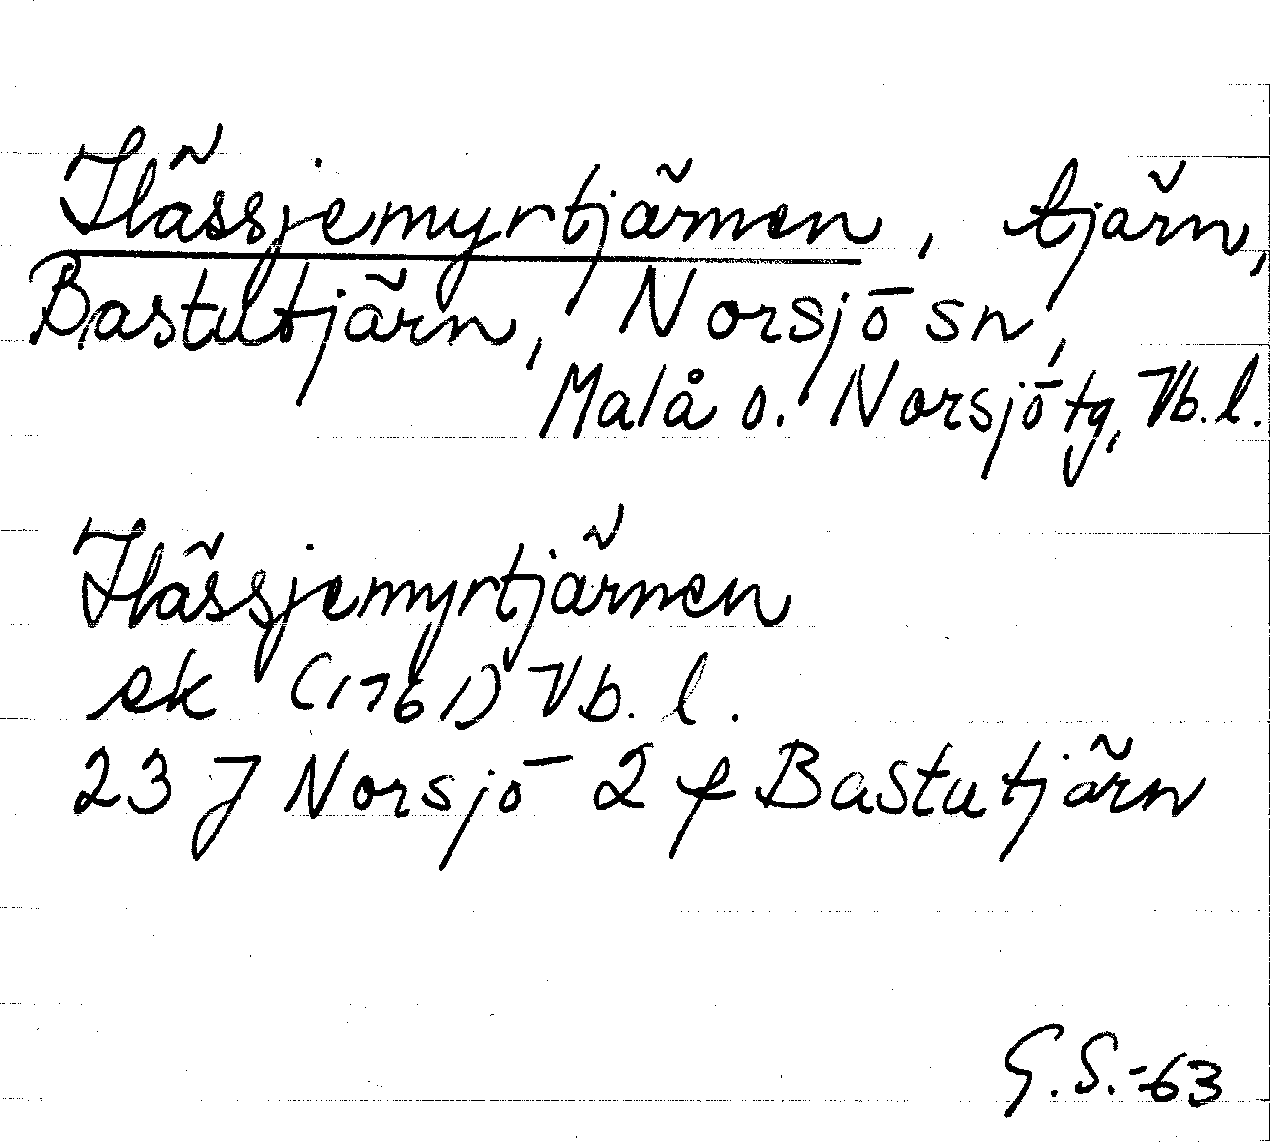 Hässjemyrtjärnen, tjärn,
Bastutjärn, Norsjö sn,
Malå o. Norsjö tg, Vb. l.
Hässjemyrtjärnen
ek (1761) Vb. l.
23 J Norsjö 2 f Bastutjärn
G.S.-63